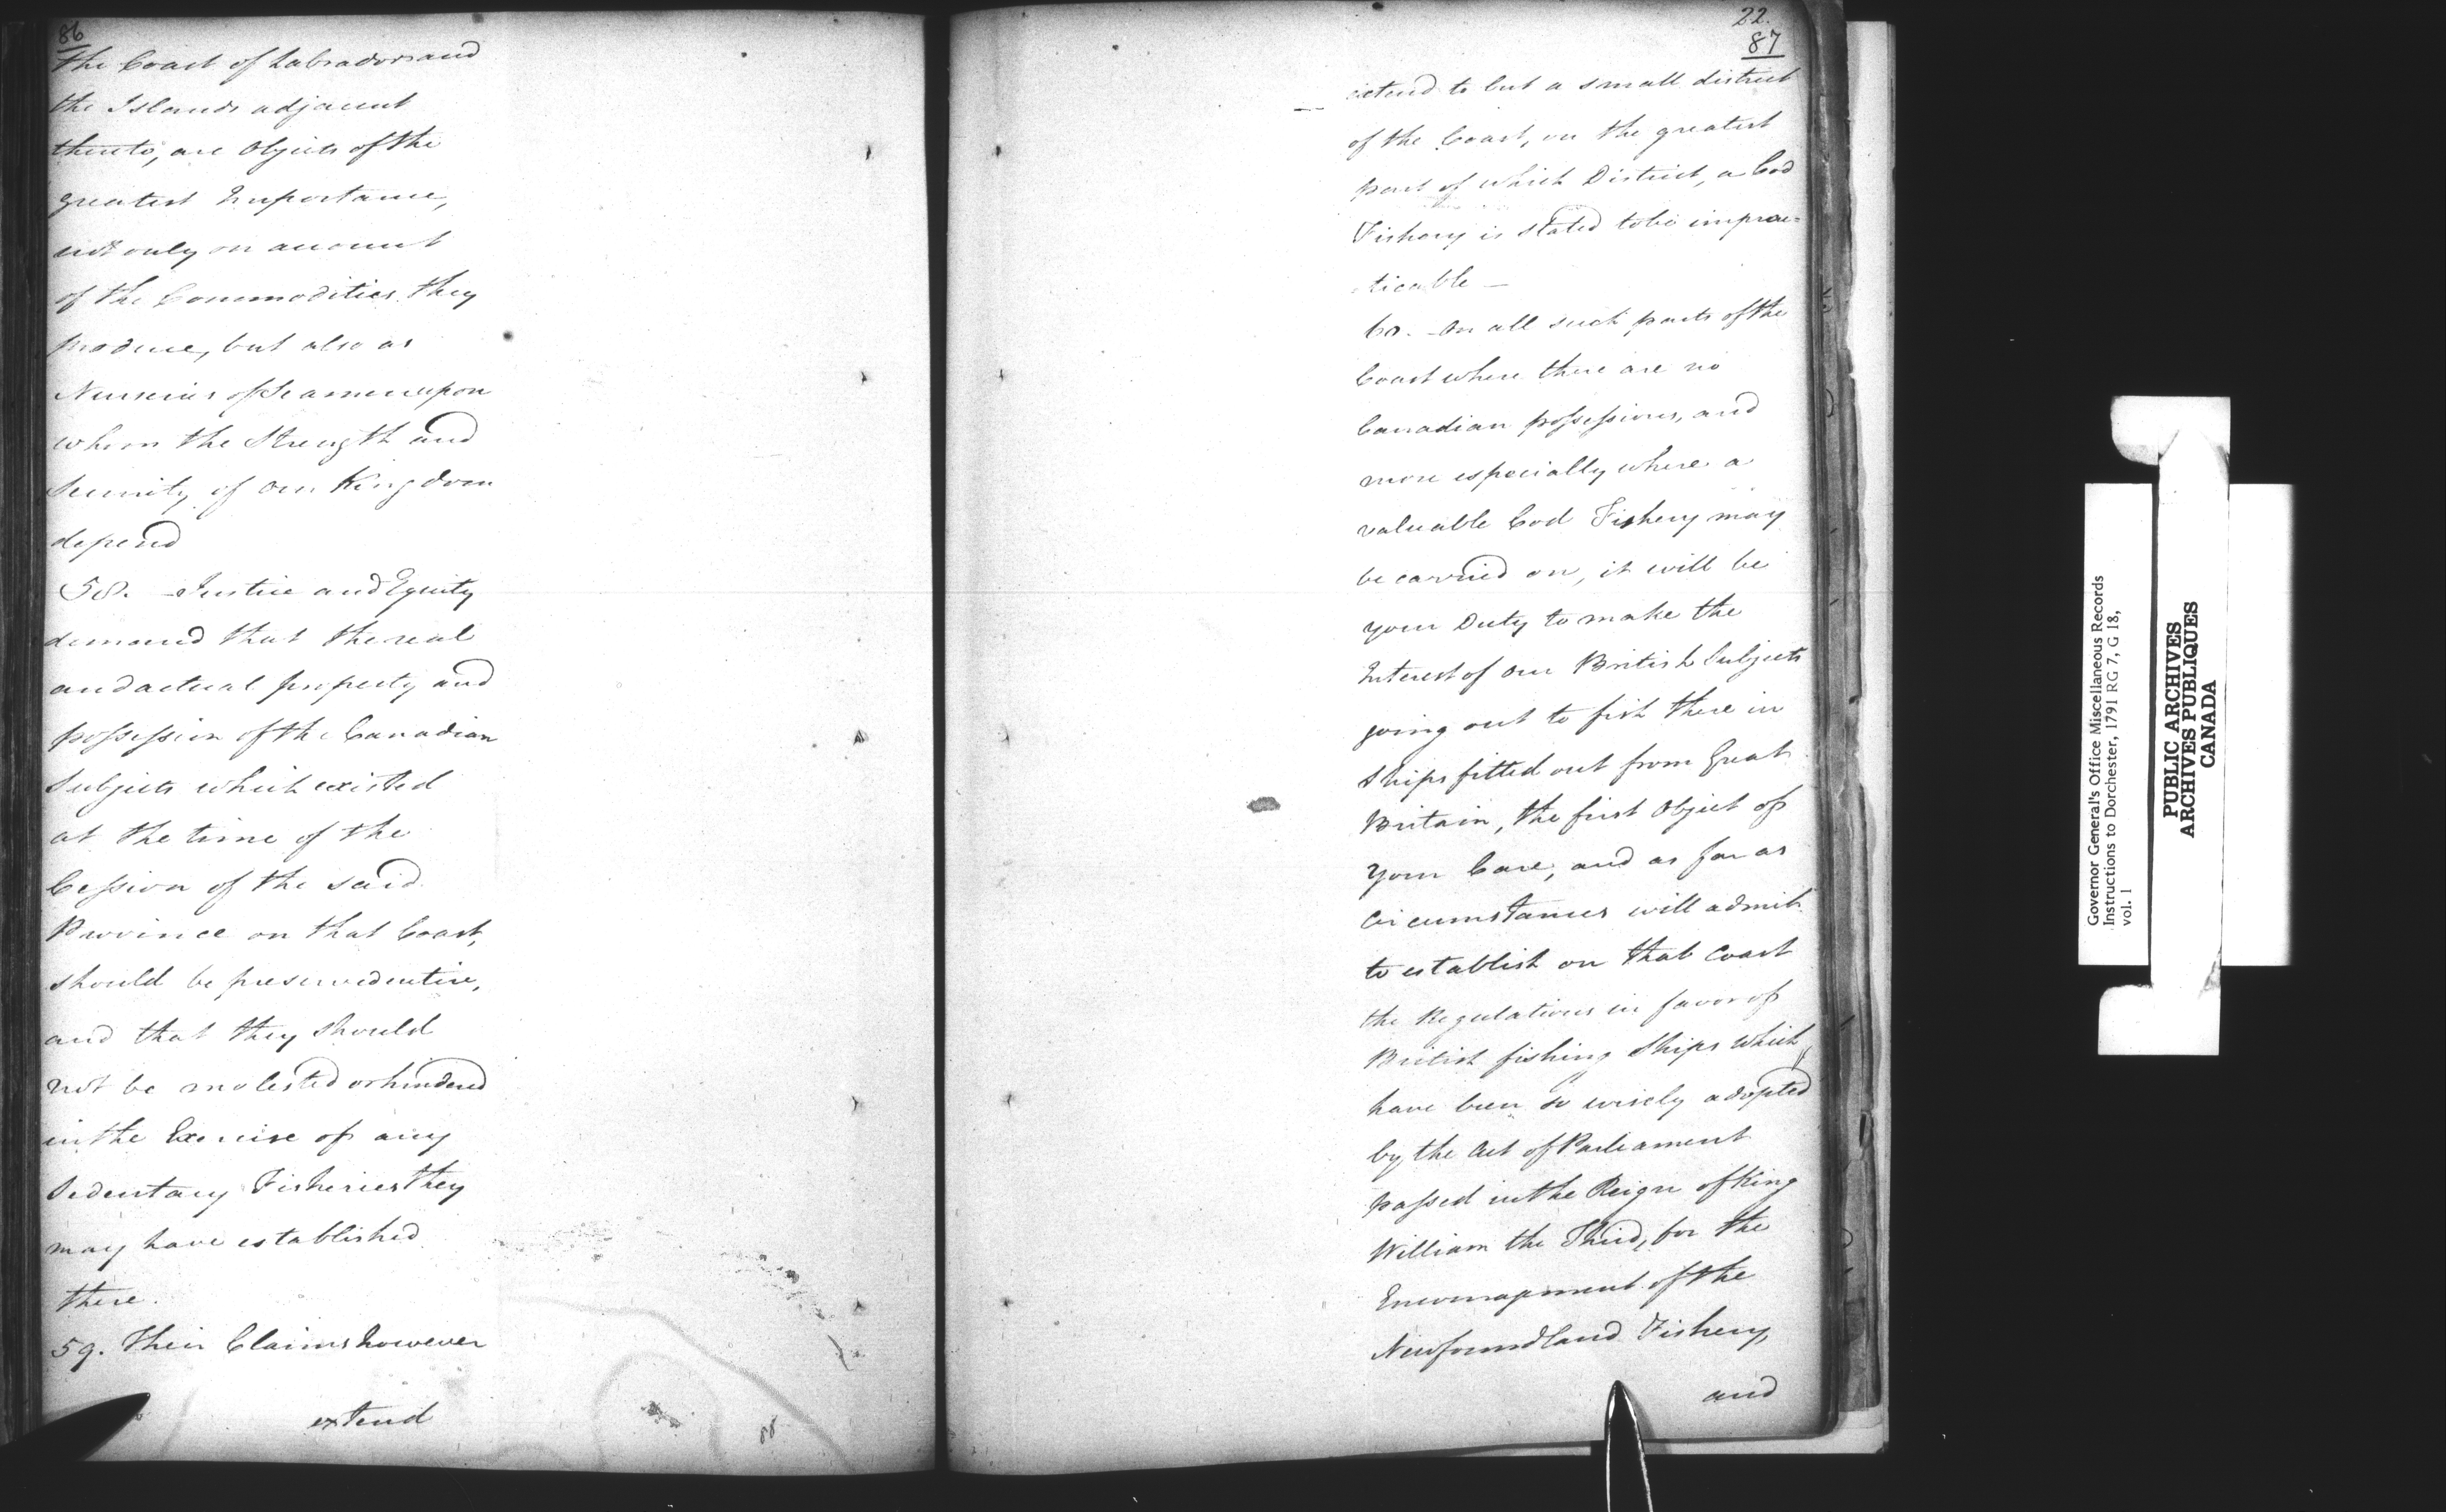 86
the Coast of Labrador and
the Islands adjacent
thereto, are Objects of the
greatest Importance,
not only on account
of the Commodities they
produce, but also as
Nurseries of Seamen upon
whom the Strength and
Security of our Kingdom
depend
58. Justice and Equity
demand that the real
and actual property and
possession of the Canadian
Subjects which existed
at the time of the
Cession of the said
Province on that Coast,
should be preserved entire,
and that they should
not be molested or hindered
in the Exercise of any
Sedentary Fisheries they
may have established
there.
59. Their Claims however
extend
88
22.
87
extend to but a small district
of the Coast, on the greatest
part of which District, a Cod
Fishery is stated to be imprac=
ticable —
60. On all such parts of the
Coast where there are no
Canadian possessions, and
more especially where a
valuable Cod Fishery may
be carried on, it will be
your Duty to make the
Interest of our British Subjects
going out to fish there in
Ships fitted out from Great
Britain, the first Object of
your Care, and as far as
Circumstances will admit
to establish on that Coast
the Regulations in favor of
British fishing Ships which
have been so wisely adopted
by the Act of Parliament
passed in the Reign of King
William the Third, for the
Encouragement of the
Newfoundland Fishery,
and
Governor General's Office Miscellaneous Records
Instructions to Dorchester, 1791 RG 7, G 18,
vol. 1
PUBLIC ARCHIVES
ARCHIVES PUBLIQUES
CANADA